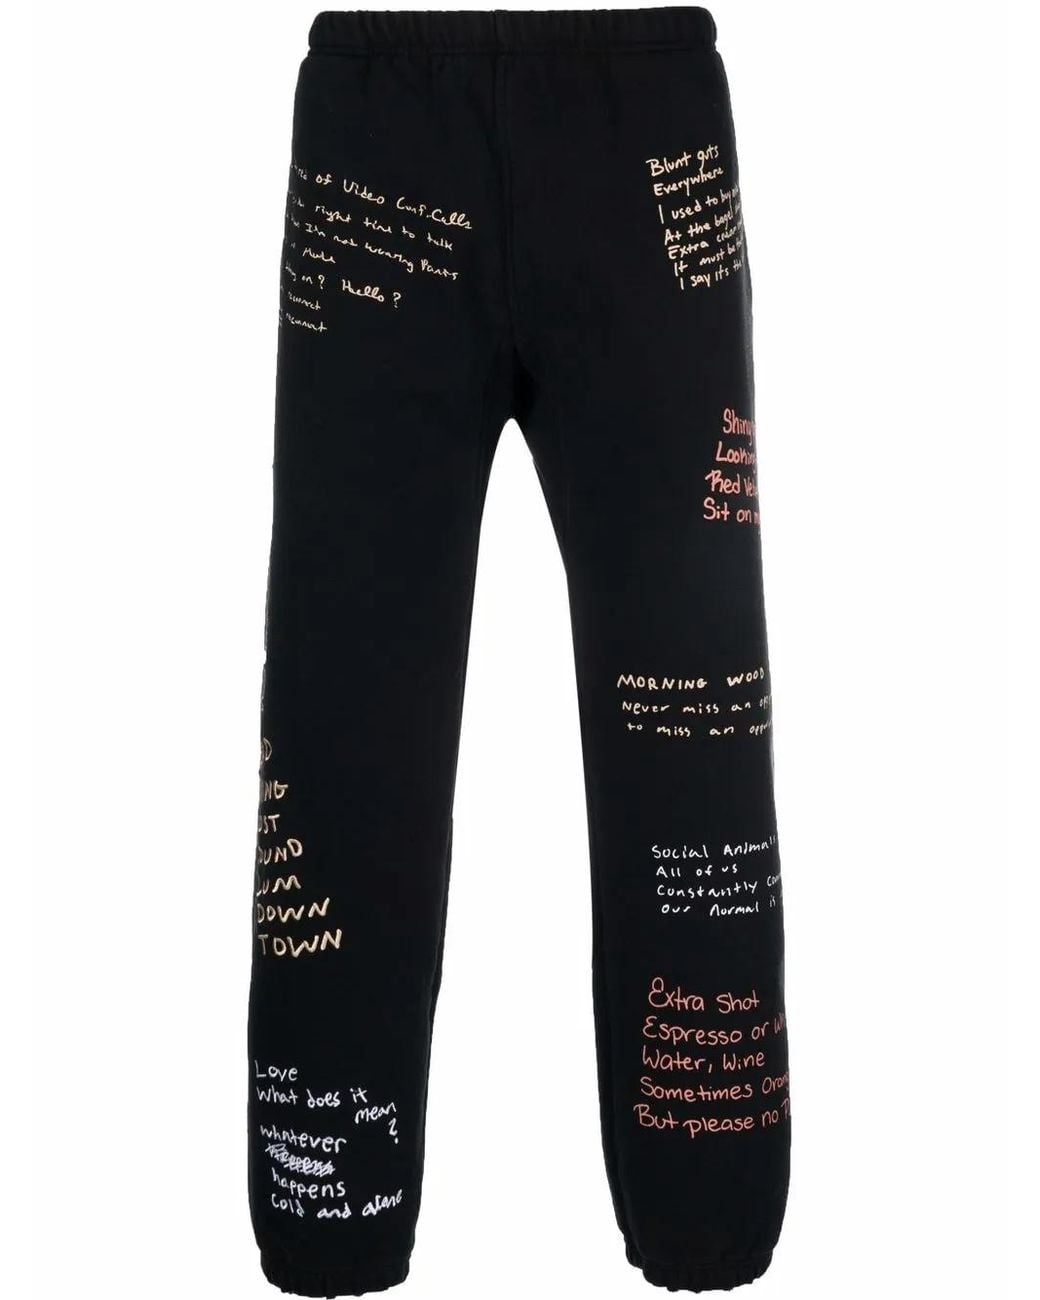 of Video Conf. Calls
right time to talk
I'm not wearing Pants
Mute
on? Hello?
reconnect
Blunt guts
Everywhere
I used to buy
At the bagel
Extra
It must be
I say it's the
Shiny
Looking
Red
Sit on
MORNING WOOD
Never miss an
to miss an
D
NG
ST
OUND
UM
DOWN
TOWN
Social Animals
All of us
Constantly
Our Normal is
Extra Shot
Espresso or
Water, Wine
Sometimes
But please no
Love
What does it
mean
?
whatever
happens
Cold and alone